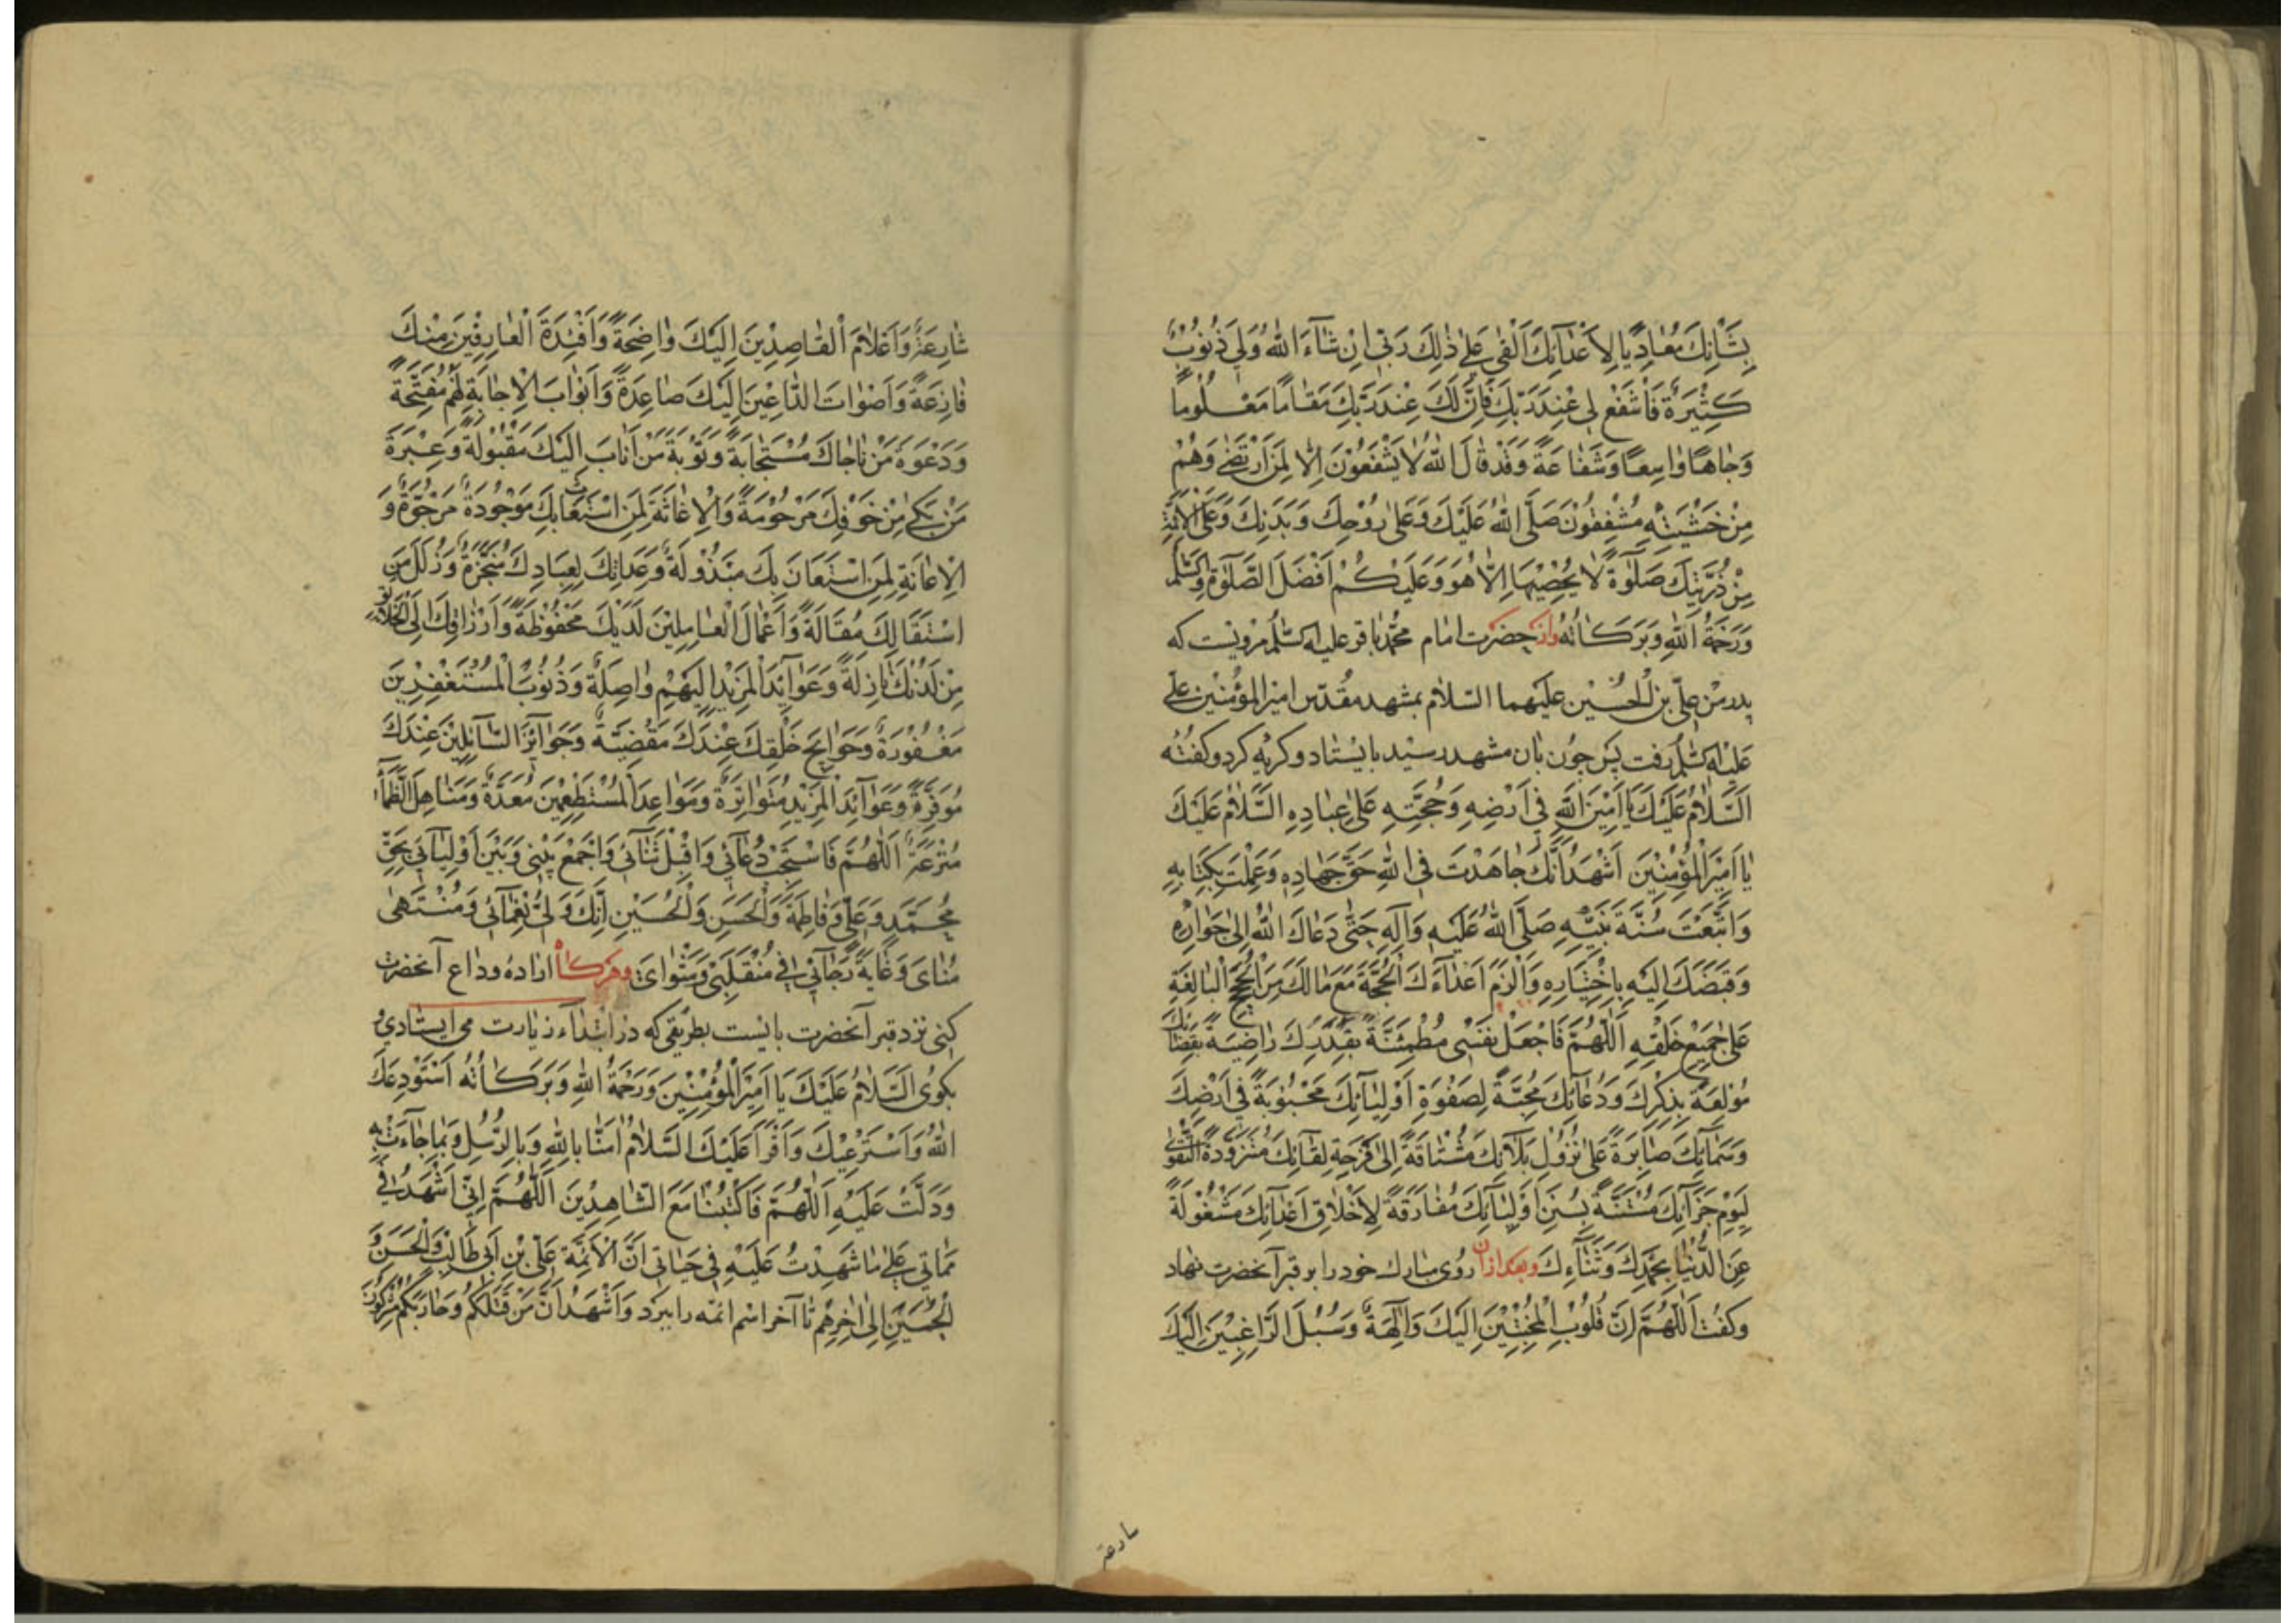 بِشَأْنِكَ مُعَادِيًا لِأَعْدَآئِكَ اَلْقٰى عَلٰى ذٰلِكَ رَبّى اِنْ شَآءَ اللّٰهُ وَلِي ذُنُوبٌ
كَثِيْرَةٌ فَاشْفَعْ لِى عِنْدَ رَبِّكَ فَاِنَّ لَكَ عِنْدَ رَبِّكَ مَقَامًا مَعْلُومًا
وَجَاهًا وَاسِعًا وَشَفَاعَةً وَقَدْ قَالَ اللّٰهُ لَا يَشْفَعُوْنَ اِلَّا لِمَنِ ارْتَضٰى وَهُمْ
مِنْ خَشْيَتِهِ مُشْفِقُونَ صَلَّى اللّٰهُ عَلَيْكَ وَعَلٰى رُوْحِكَ وَبَدَنِكَ وَعَلَى الْاَئِمَّةِ
مِنْ ذُرِّيَّتِكَ صَلٰوةً لَا يُحْصِيْهَا اِلَّا هُوَ وَعَلَيْكُمْ اَفْضَلَ الصَّلٰوةِ وَالسَّلٰمُ
وَرَحْمَةُ اللّٰهِ وَبَرَكَاتُهُ واز حضرت امام محمّد باقر عليه السّلم مرويست كه
پدر من علىّ بن الحُسَيْن عليهما السّلام بمشهد مقدّس امير المؤمنين على
عليه السّلم رفت پس چون بان مشهد رسيد بايستاد وكريه كرد وكفت
اَلسَّلَامُ عَلَيْكَ يَا اَمِيْنَ اللّٰهِ فِى اَرْضِهِ وَحُجَّتِهِ عَلٰى عِبَادِهِ السَّلَامُ عَلَيْكَ
يَا اَمِيْرَ الْمُؤْمِنِيْنَ اَشْهَدُ اَنَّكَ جَاهَدْتَ فِى اللّٰهِ حَقَّ جِهَادِهِ وَعَمِلْتَ بِكِتَابِهِ
وَاتَّبَعْتَ سُنَّةَ نَبِيِّهِ صَلَّى اللّٰهُ عَلَيْهِ وَآلِهِ حَتّٰى دَعَاكَ اللّٰهُ اِلٰى جَوَارِهِ
وَقَبَضَكَ اِلَيْهِ بِاخْتِيَارِهِ وَاَلْزَمَ اَعْدَآءَكَ الْحُجَّةَ مَعَ مَا لَكَ مِنَ الْحُجَجِ الْبَالِغَةِ
عَلٰى جَمِيْعِ خَلْقِهِ اَللّٰهُمَّ فَاجْعَلْ نَفْسِى مُطْمَئِنَّةً بِقَدَرِكَ رَاضِيَةً بِقَضَائِكَ
مُوْلَعَةً بِذِكْرِكَ وَدُعَآئِكَ مُحِبَّةً لِصَفْوَةِ اَوْلِيَآئِكَ مَحْبُوْبَةً فِى اَرْضِكَ
وَسَمَآئِكَ صَابِرَةً عَلٰى نُزُوْلِ بَلَآئِكَ مُشْتَاقَةً اِلٰى فَرْحَةِ لِقَآئِكَ مُتَزَوِّدَةً التَّقْوٰى
لِيَوْمِ جَزَآئِكَ مُسْتَنَّةً بِسُنَنِ اَوْلِيَآئِكَ مُفَارِقَةً لِاَخْلَاقِ اَعْدَآئِكَ مَشْغُوْلَةً
عَنِ الدُّنْيَا بِحَمْدِكَ وَثَنَآءِكَ وبعد ازان روى مبارك خود را بر قبر آنحضرت نهاد
وكفت اَللّٰهُمَّ اِنَّ قُلُوْبَ الْمُخْبِتِيْنَ اِلَيْكَ وَالِهَةٌ وَسُبُلَ الرَّاغِبِيْنَ اِلَيْكَ
شارعة
شَارِعَةٌ وَاَعْلَامَ الْقَاصِدِيْنَ اِلَيْكَ وَاضِحَةٌ وَاَفْئِدَةَ الْعَارِفِيْنَ مِنْكَ
فَازِعَةٌ وَاَصْوَاتَ الدَّاعِيْنَ اِلَيْكَ صَاعِدَةٌ وَاَبْوَابَ الْاِجَابَةِ لَهُمْ مُفَتَّحَةٌ
وَدَعْوَةَ مَنْ نَاجَاكَ مُسْتَجَابَةٌ وَتَوْبَةَ مَنْ اَنَابَ اِلَيْكَ مَقْبُوْلَةٌ وَعَبْرَةَ
مَنْ بَكٰى مِنْ خَوْفِكَ مَرْحُوْمَةٌ وَالْاِغَاثَةَ لِمَنِ اسْتَغَاثَ بِكَ مَوْجُوْدَةٌ مَرْجُوَّةٌ وَ
الْاِعَانَةِ لِمَنِ اسْتَعَانَ بِكَ مَبْذُوْلَةٌ وَعِدَاتِكَ لِعِبَادِكَ مُنْجَزَةٌ وَزَلَلَ مَنِ
اسْتَقَالَكَ مُقَالَةٌ وَاَعْمَالَ الْعَامِلِيْنَ لَدَيْكَ مَحْفُوْظَةٌ وَاَرْزَاقَكَ اِلَى الْخَلَائِقِ
مِنْ لَدُنْكَ نَازِلَةٌ وَعَوَآئِدَ الْمَزِيْدِ اِلَيْهِمْ وَاصِلَةٌ وَذُنُوْبَ الْمُسْتَغْفِرِيْنَ
مَغْفُوْرَةٌ وَحَوَآئِجَ خَلْقِكَ عِنْدَكَ مَقْضِيَّةٌ وَجَوَآئِزَ السَّآئِلِيْنَ عِنْدَكَ
مُوَفَّرَةٌ وَعَوَآئِدَ الْمَزِيْدِ مُتَوَاتِرَةٌ وَمَوَاعِدَ الْمُسْتَطْعِمِيْنَ مُعَدَّةٌ وَمَنَاهِلَ الظَّمَأِ
مُتْرَعَةٌ اَللّٰهُمَّ فَاسْتَجِبْ دُعَآئِى وَاقْبَلْ ثَنَآئِى وَاجْمَعْ بَيْنِى وَبَيْنَ اَوْلِيَآئِى بِحَقِّ
مُحَمَّدٍ وَعَلِيٍّ وَفَاطِمَةَ وَالْحَسَنِ وَالْحُسَيْنِ اِنَّكَ وَلِىُّ نَعْمَآئِى وَمُنْتَهٰى
مُنَاىَ وَغَايَةُ رَجَآئِى فِى مُنْقَلَبِى وَمَثْوَاىَ وهركاه اراده وداع آنحضرت
كنى نزد قبر آنحضرت بايست بطريقى كه در ابتدآء زيارت مى ايستادى و
بكوى اَلسَّلَامُ عَلَيْكَ يَا اَمِيْرَ الْمُؤْمِنِيْنَ وَرَحْمَةُ اللّٰهِ وَبَرَكَاتُهُ اَسْتَوْدِعُكَ
اللّٰهَ وَاَسْتَرْعِيْكَ وَاَقْرَأُ عَلَيْكَ السَّلَامُ اٰمَنَّا بِاللّٰهِ وَبِالرُّسُلِ وَبِمَا جَآءَتْ بِهِ
وَدَلَّتْ عَلَيْهِ اَللّٰهُمَّ فَاكْتُبْنَا مَعَ الشَّاهِدِيْنَ اَللّٰهُمَّ اِنِّى اَشْهَدُ فِى
مَمَاتِى عَلٰى مَا شَهِدْتُ عَلَيْهِ فِى حَيَاتِى اَنَّ الْاَئِمَّةَ عَلِىِّ بْنِ اَبِى طَالِبٍ وَالْحَسَنُ وَ
الْحُسَيْنِ اِلٰى اٰخِرِهِمْ تا آخر اسم ائمه را ببرد وَاَشْهَدُ اَنَّ مَنْ قَتَلَكُمْ وَحَارَبَكُمْ مُشْرِكُونَ